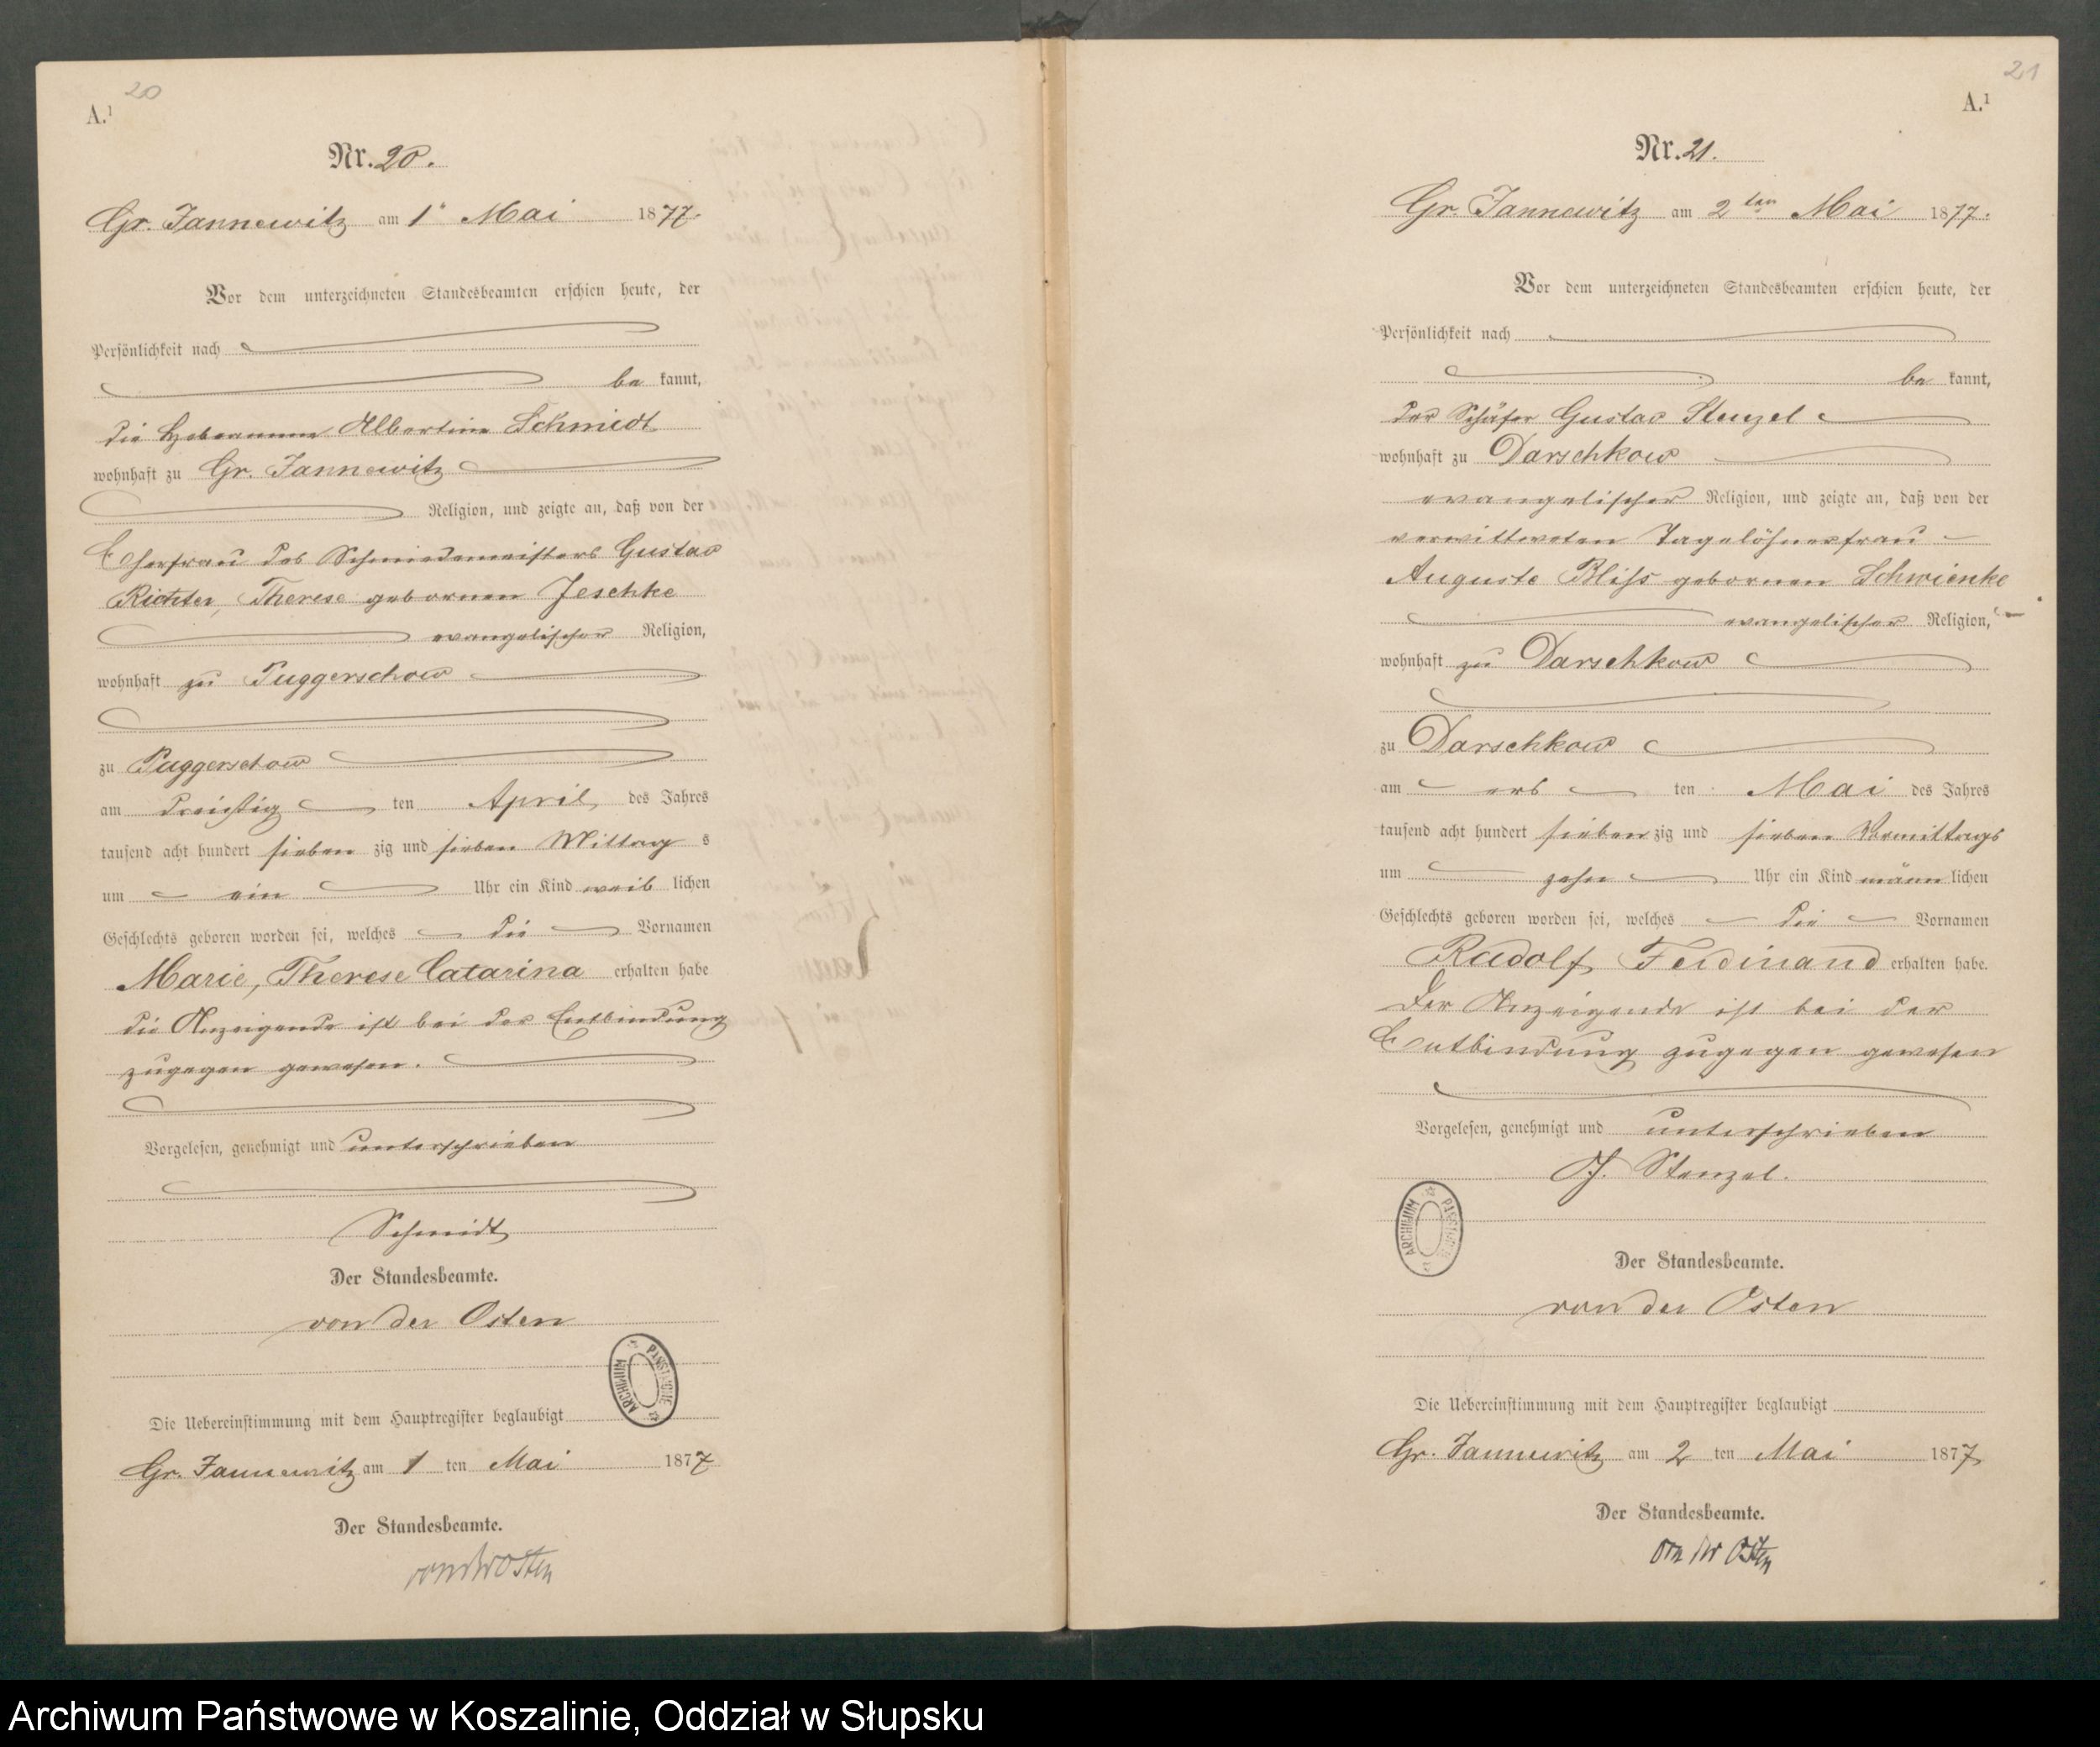 20
A.¹
Nr. 20.
Gr. Jannewitz am 1ᵗ Mai 1877.
Vor dem unterzeichneten Standesbeamten erschien heute, der
Persönlichkeit nach
be kannt,
die Hebamme Albertine Schmidt
wohnhaft zu Gr. Jannewitz
Religion, und zeigte an, daß von der
Ehefrau des Schmiedemeisters Gustav
Richter, Therese gebornen Jeschke
evangelischer Religion,
wohnhaft zu Puggerschow
zu Puggerschow
am dreißig ten April des Jahres
tausend acht hundert sieben zig und sieben Mittag s
um ein Uhr ein Kind weib lichen
Geschlechts geboren worden sei, welches die Vornamen
Marie, Therese Catarina erhalten habe
die Anzeigende ist bei der Entbindung
zugegen gewesen.
Vorgelesen, genehmigt und unterschrieben
Schmidt
Der Standesbeamte.
von der Osten
ARCHIWUM PAŃSTWOWE
Die Uebereinstimmung mit dem Hauptregister beglaubigt
Gr. Jannewitz am 1 ten Mai 1877
Der Standesbeamte.
von der Osten
21
A.¹
Nr. 21.
Gr. Jannewitz am 2ten Mai 1877.
Vor dem unterzeichneten Standesbeamten erschien heute, der
Persönlichkeit nach
be kannt,
der Schäfer Gustav Stenzel
wohnhaft zu Darschkow
evangelischer Religion, und zeigte an, daß von der
verwittweten Tagelöhnerfrau
Auguste Bliss gebornen Schwienke
evangelischer Religion,
wohnhaft zu Darschkow
zu Darschkow
am ers ten Mai des Jahres
tausend acht hundert sieben zig und sieben Vormittags
um zehn Uhr ein Kind männ lichen
Geschlechts geboren worden sei, welches die Vornamen
Rudolf Ferdinand erhalten habe.
Der Anzeigende ist bei der
Entbindung zugegen gewesen
Vorgelesen, genehmigt und unterschrieben
G. Stenzel.
ARCHIWUM PAŃSTWOWE
Der Standesbeamte.
von der Osten
Die Uebereinstimmung mit dem Hauptregister beglaubigt
Gr. Jannewitz am 2 ten Mai 1877
Der Standesbeamte.
von der Osten
Archiwum Państwowe w Koszalinie, Oddział w Słupsku